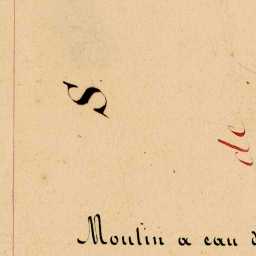 S
de
Moulin a eau